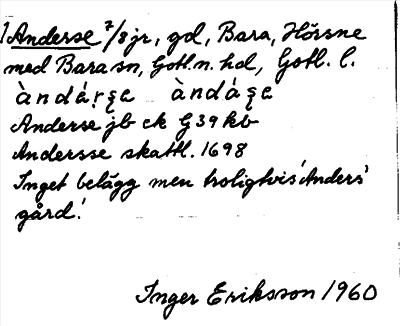 1 Anderse 7/8 jr, gd, Bara, Hörsne
med Bara sn, Gotl. n. hd, Gotl. l.
àndárse àndáse
Anderse jb ek G 39 kb
Andersse skattl. 1698
Inget belägg men troligtvis 'Anders'
gård'.
Inger Eriksson 1960